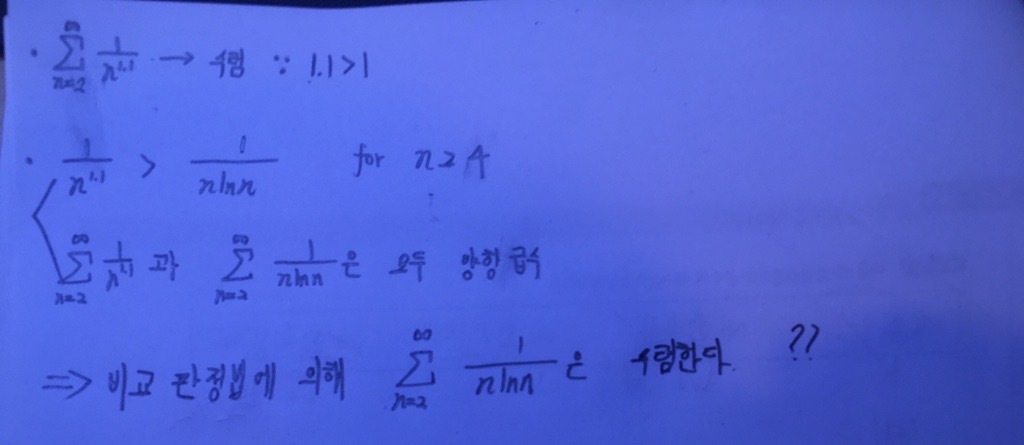 · ∑_{n=2}^{∞} 1/n^{1.1} → 수렴 ∵ 1.1 > 1
· 1/n^{1.1} > 1/(n ln n) for n ≥ 4
∑_{n=2}^{∞} 1/n^{1.1} 과 ∑_{n=2}^{∞} 1/(n ln n) 은 모두 양항급수
⇒ 비교 판정법에 의해 ∑_{n=2}^{∞} 1/(n ln n) 은 수렴한다. ??